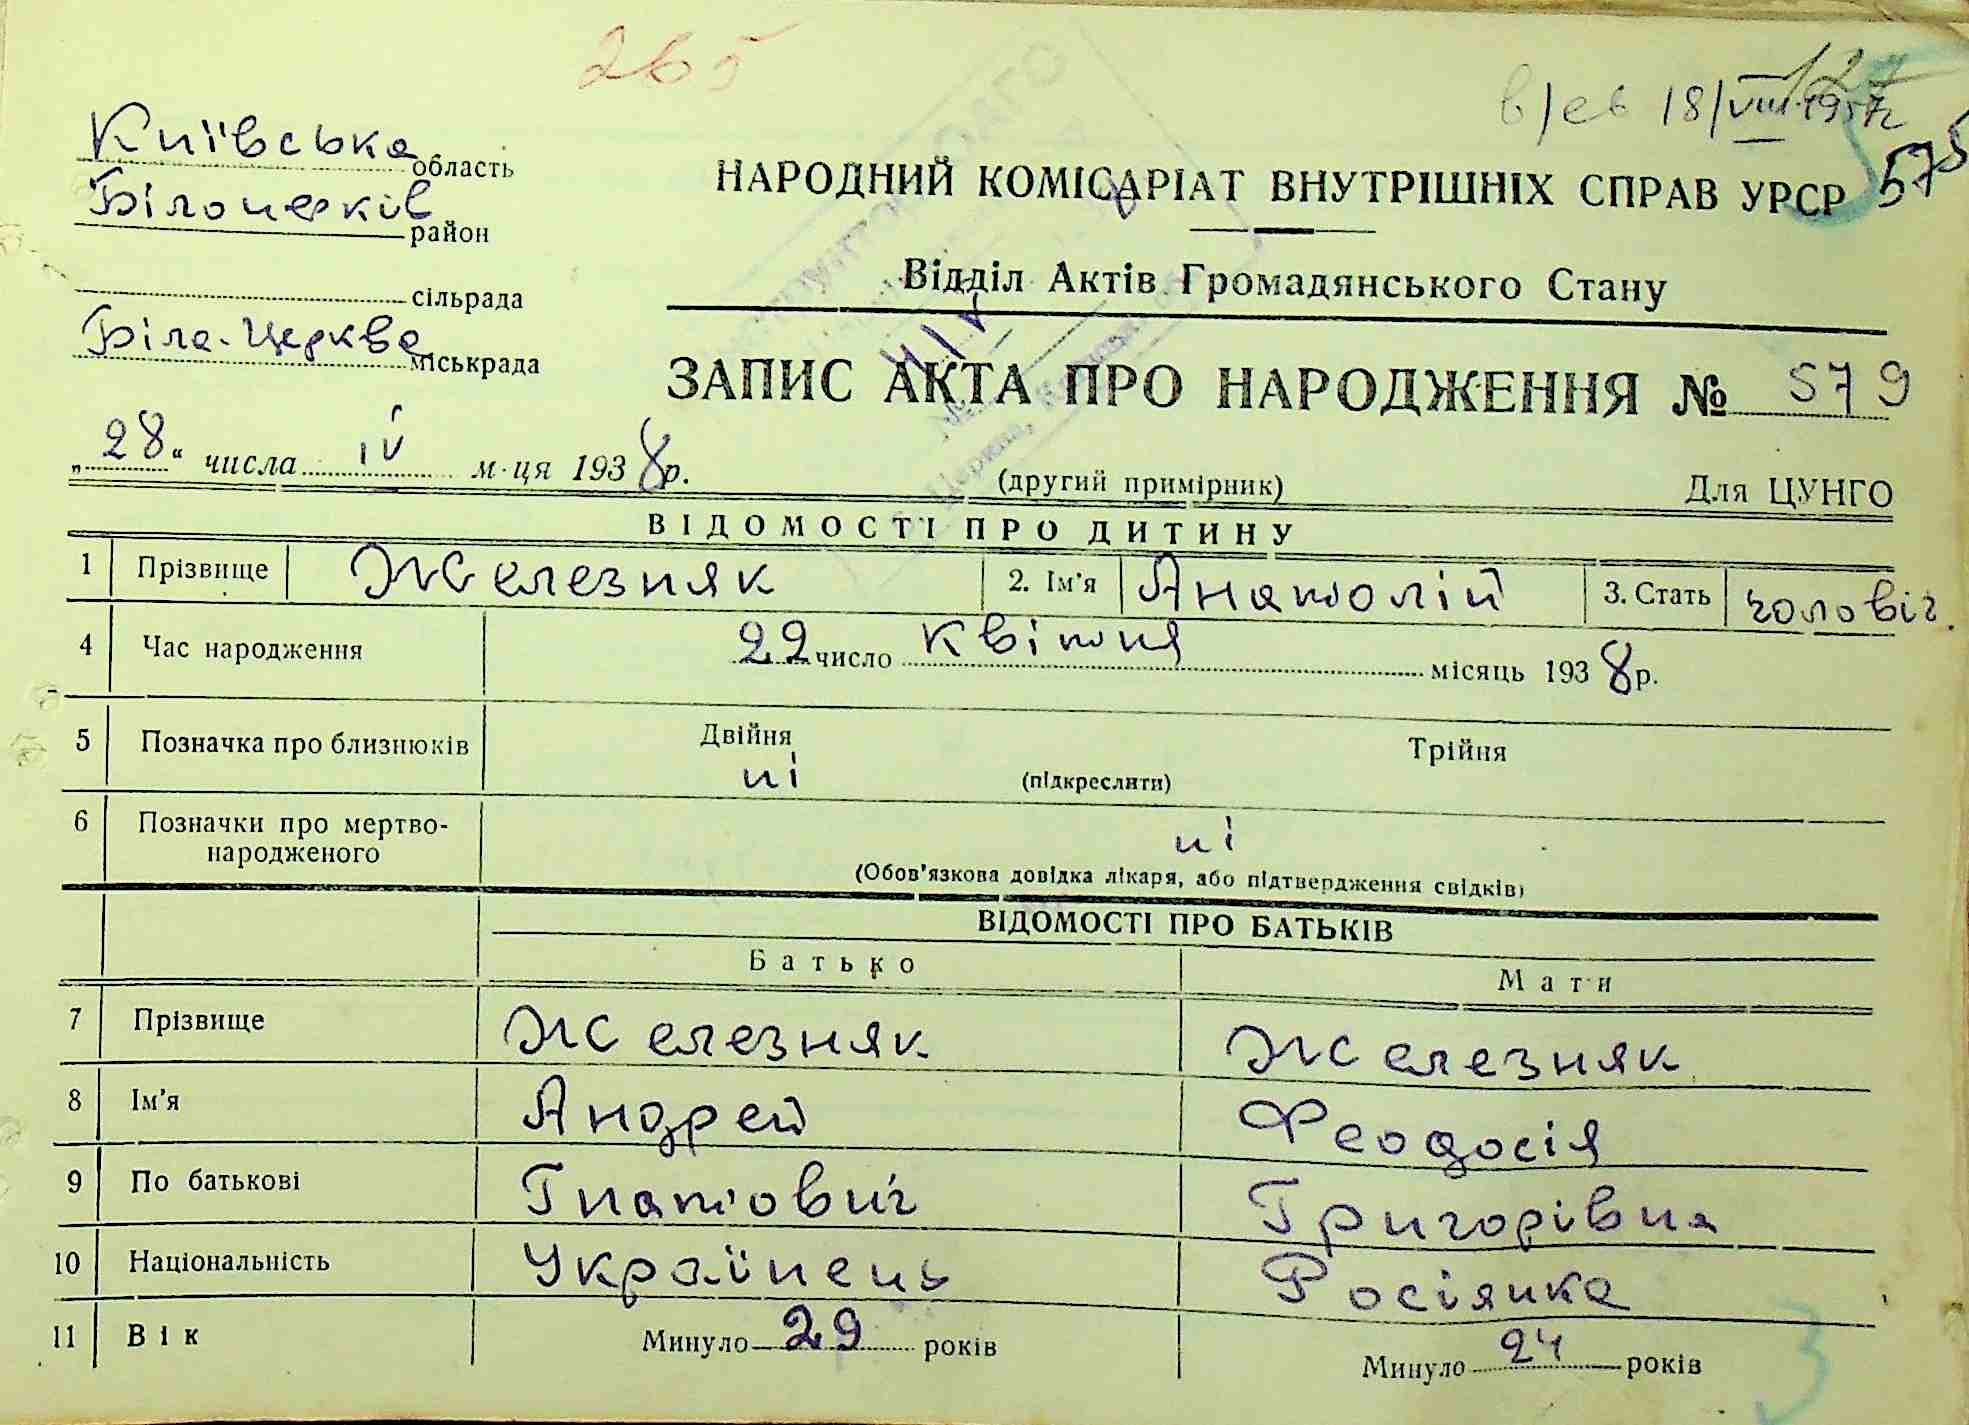 265
в/ев 18/VIII.1957
575
Київська область
Білоцерків район
сільрада
Біла-Церква міськрада
НАРОДНИЙ КОМІСАРІАТ ВНУТРІШНІХ СПРАВ УРСР
Відділ Актів Громадянського Стану
ЗАПИС АКТА ПРО НАРОДЖЕННЯ № 579
„28“ числа IV м-ця 1938р.
(другий примірник) Для ЦУНГО
ВІДОМОСТІ ПРО ДИТИНУ
1 Прізвище Железняк 2. Ім'я Анатолій 3. Стать чоловіч.
4 Час народження 22 число квітня місяць 1938р.
5 Позначка про близнюків Двійня Трійня
ні (підкреслити)
6 Позначки про мертво-
народженого ні
(Обов'язкова довідка лікаря, або підтвердження свідків)
ВІДОМОСТІ ПРО БАТЬКІВ
Батько Мати
7 Прізвище Железняк Железняк
8 Ім'я Андрей Феодосія
9 По батькові Гнатович Григорівна
10 Національність Українець Росіянка
11 Вік Минуло 29 років Минуло 24 років
3